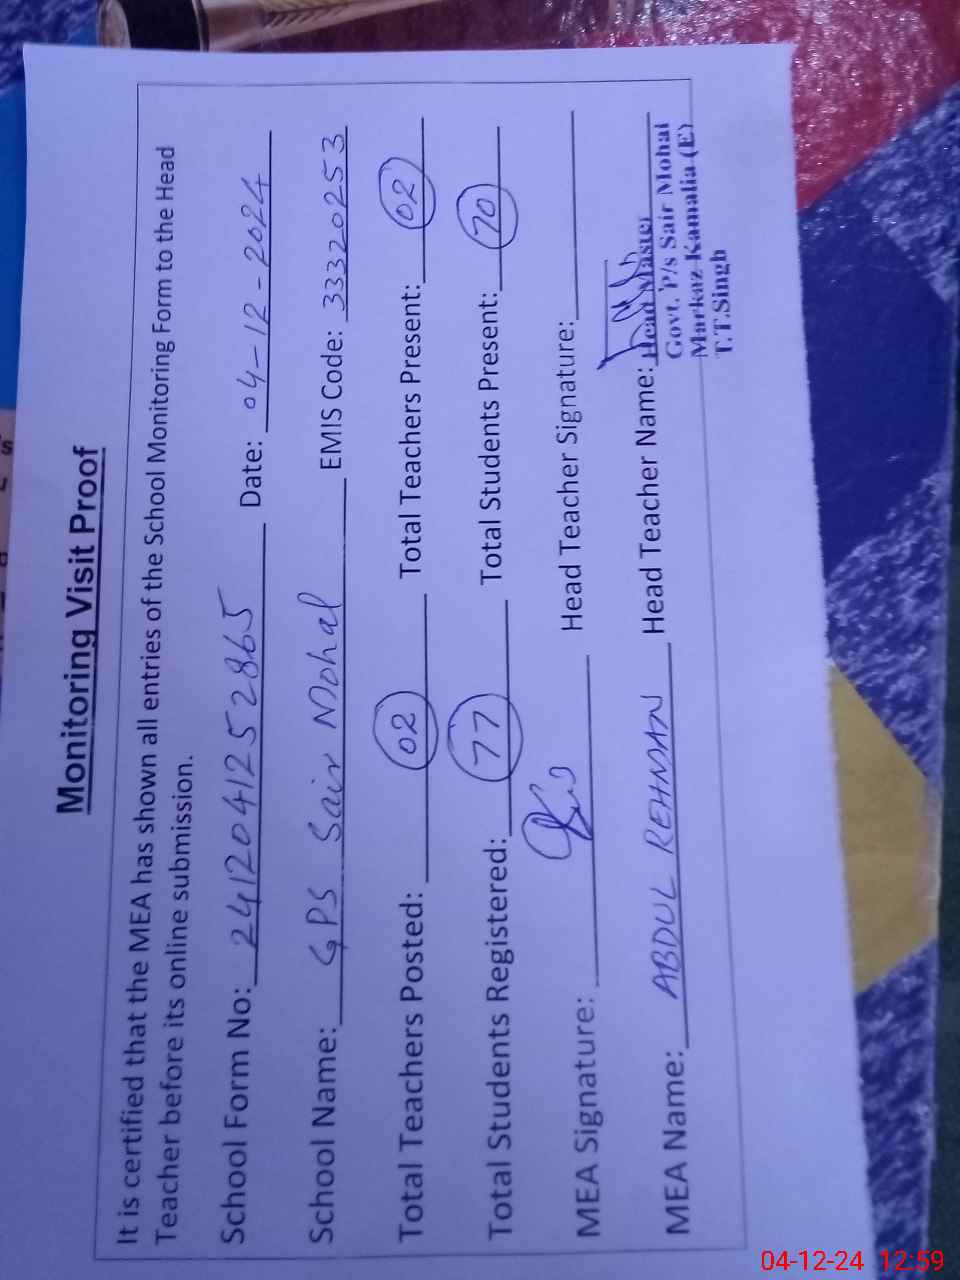 Monitoring Visit Proof
It is certified that the MEA has shown all entries of the School Monitoring Form to the Head
Teacher before its online submission.
School Form No: 241204125 2865 Date: 04-12-2024
School Name: GPS Sair Mohal EMIS Code: 33320253
Total Teachers Posted: 02 Total Teachers Present: 02
Total Students Registered: 77 Total Students Present: 70
MEA Signature: Head Teacher Signature:
MEA Name: ABDUL REHMAN Head Teacher Name: Head Master
Govt. P/s Sair Mohal
Markaz Kamalia (E)
T.T.Singh
04-12-24 12:59